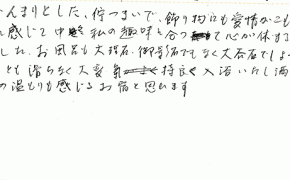 んまりとした、佇つまいで、飾り物にも愛情がこも
感じて 中 私の趣味と合って 心が休ま
した。お風呂も大理石、御影石でもなく大谷石でしょ
とも滑らなく大変 気持良く入浴いたし酒
の温もりも感じるお宿と思います